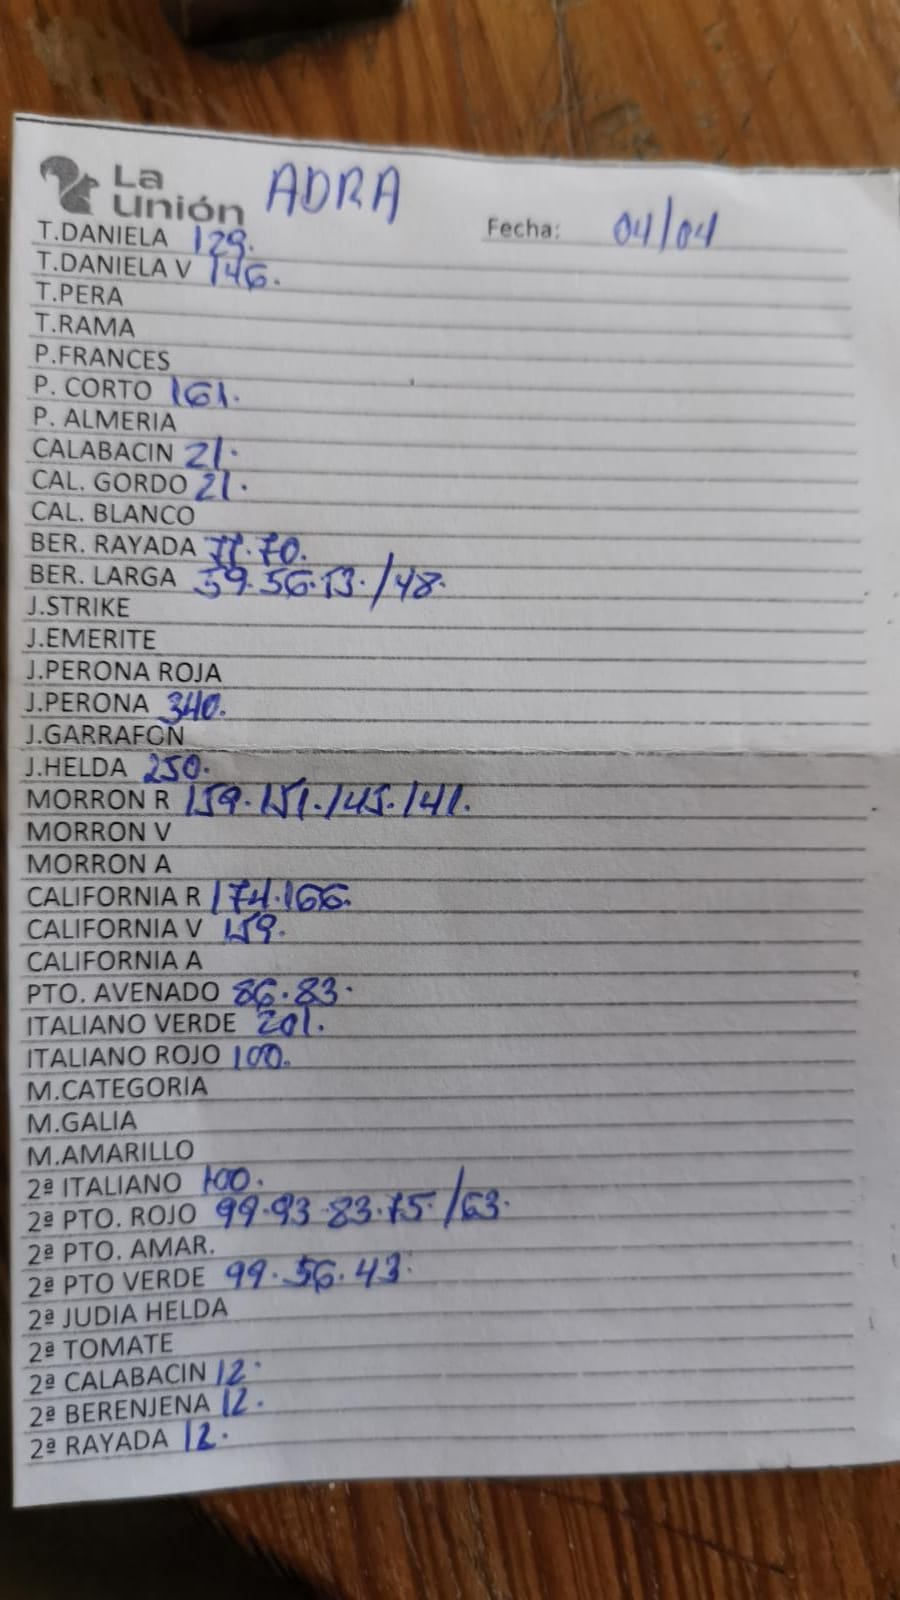 La Unión ADRA
Fecha: 04/04
T.DANIELA 129.
T.DANIELA V 146.
T.PERA
T.RAMA
P.FRANCES
P. CORTO 161.
P. ALMERIA
CALABACIN 21.
CAL. GORDO 21.
CAL. BLANCO
BER. RAYADA 77.70.
BER. LARGA 59.56.53./48.
J.STRIKE
J.EMERITE
J.PERONA ROJA
J.PERONA 340.
J.GARRAFON
J.HELDA 250.
MORRON R 159.151.145.141.
MORRON V
MORRON A
CALIFORNIA R 174.166.
CALIFORNIA V 159.
CALIFORNIA A
PTO. AVENADO 86.83.
ITALIANO VERDE 201.
ITALIANO ROJO 100.
M.CATEGORIA
M.GALIA
M.AMARILLO
2ª ITALIANO 100.
2ª PTO. ROJO 99.93.83.75./63.
2ª PTO. AMAR.
2ª PTO VERDE 99.56.43.
2ª JUDIA HELDA
2ª TOMATE
2ª CALABACIN 12.
2ª BERENJENA 12.
2ª RAYADA 12.